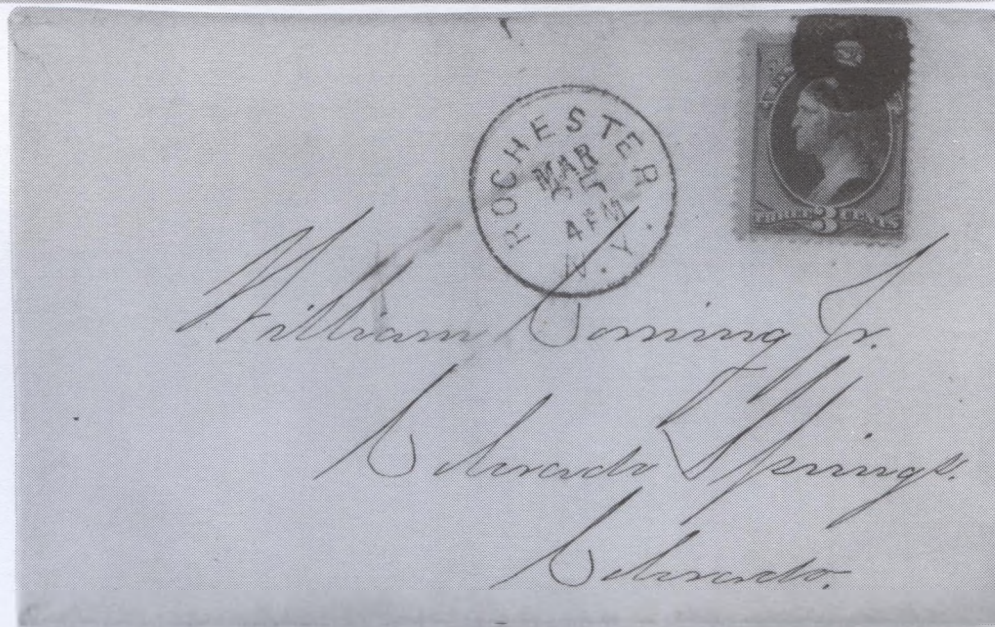 ROCHESTER
MAR
4 PM
N.Y.
3
William Corning Jr.
Colorado Springs.
Colorado.